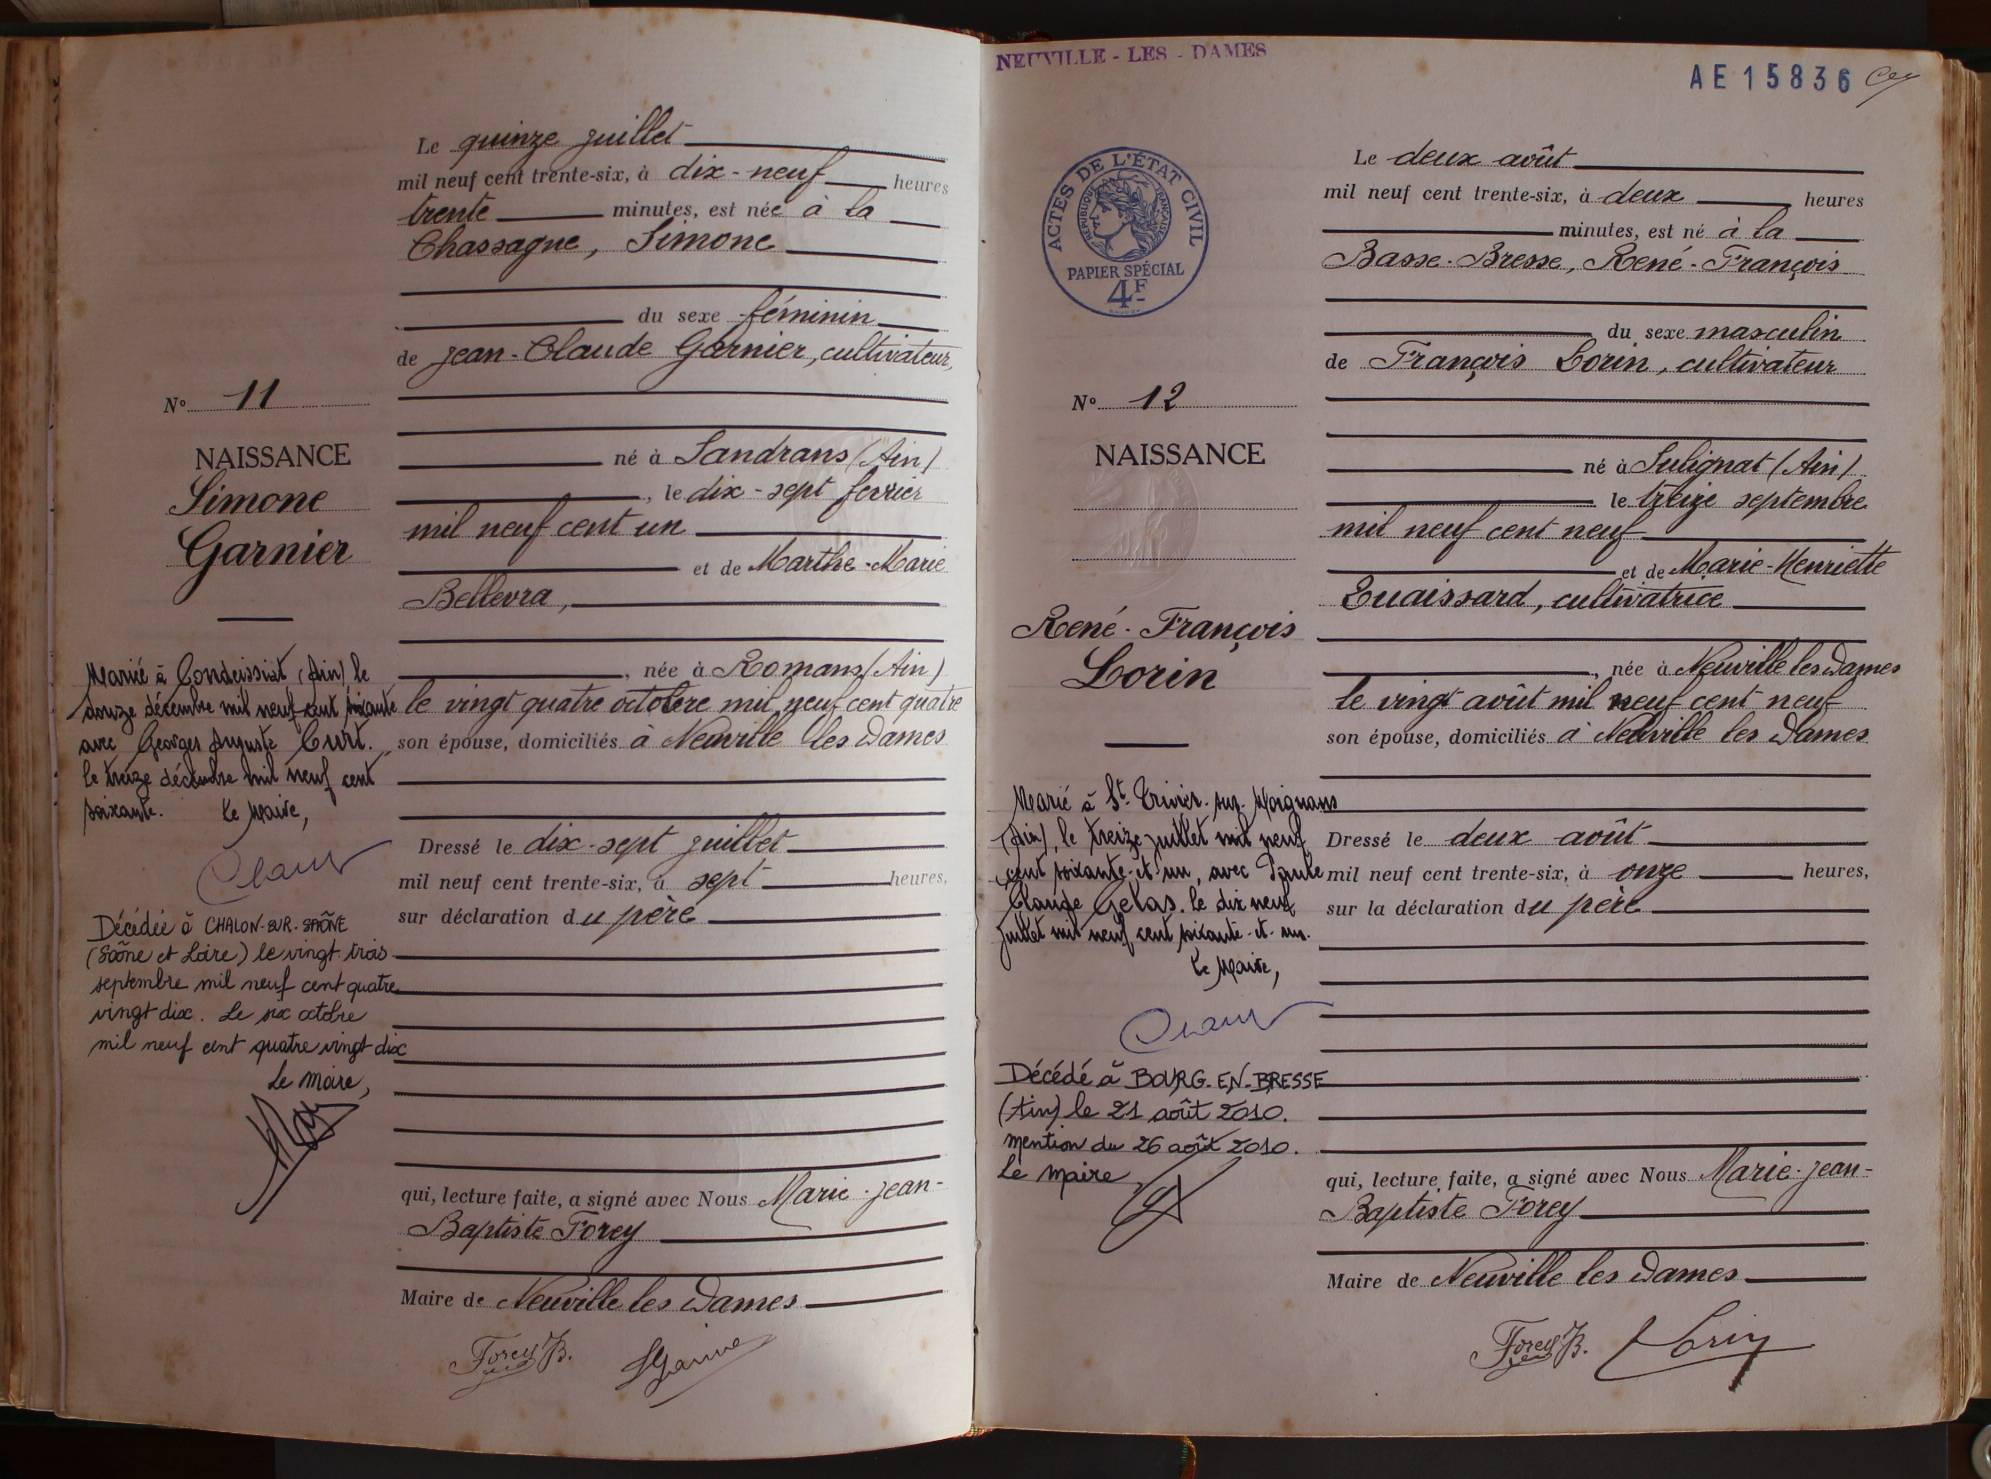 Le quinze juillet
mil neuf cent trente-six, à dix-neuf heures
trente minutes, est née à la
Chassagne, Simone
du sexe féminin
de Jean-Claude Garnier, cultivateur,
né à Sandrans (Ain)
, le dix-sept février
mil neuf cent un
et de Marthe-Marie
Bellevra,
, née à Romans (Ain)
le vingt quatre octobre mil neuf cent quatre
son épouse, domiciliés à Neuville les Dames
Dressé le dix-sept juillet
mil neuf cent trente-six, à sept heures,
sur déclaration du père
qui, lecture faite, a signé avec Nous Marie-Jean-
Baptiste Forey
Maire de Neuville les Dames
Forey B.
N° 11
NAISSANCE
Simone
Garnier
Mariée à Condeissiat (Ain) le
douze décembre mil neuf cent soixante
avec Georges Auguste Curt.
le treize décembre mil neuf cent
soixante. Le Maire,
Décédée à CHALON-SUR-SAÔNE
(Saône et Loire) le vingt trois
septembre mil neuf cent quatre
vingt dix. Le six octobre
mil neuf cent quatre vingt dix
Le Maire,
NEUVILLE - LES - DAMES
AE15836
ACTES DE L'ÉTAT CIVIL
RÉPUBLIQUE FRANÇAISE
PAPIER SPÉCIAL
4F
Le deux août
mil neuf cent trente-six, à deux heures
minutes, est né à la
Basse-Bresse, René-François
du sexe masculin
de François Lorin, cultivateur
né à Sulignat (Ain)
le treize septembre
mil neuf cent neuf
et de Marie-Henriette
Euaissard, cultivatrice
, née à Neuville les Dames
le vingt août mil neuf cent neuf
son épouse, domiciliés à Neuville les Dames
Dressé le deux août
mil neuf cent trente-six, à onze heures,
sur la déclaration du père
qui, lecture faite, a signé avec Nous Marie-Jean-
Baptiste Forey
Maire de Neuville les Dames
Forey B. Lorin
N° 12
NAISSANCE
René-François
Lorin
Marié à St-Trivier-sur-Moignans
(Ain), le treize juillet mil neuf
cent soixante-et-un, avec Paule
Claude Gelas. le dix neuf
juillet mil neuf cent soixante-et-un.
Le Maire,
Décédé à BOURG-EN-BRESSE
(Ain) le 21 août 2010.
mention du 26 août 2010.
Le Maire,